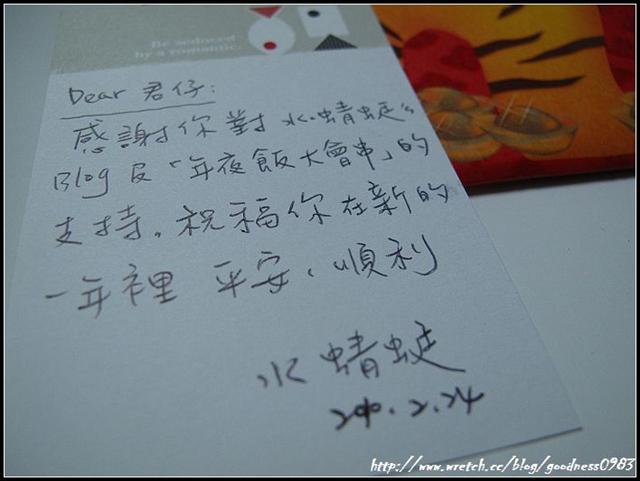 Be seduced
by a romantic.
Dear 君仔:
感謝你對水蜻蜓's
Blog 及「年夜飯大會串」的
支持。祝福你在新的
一年裡 平安、順利
水蜻蜓
2010.2.24
http://www.wretch.cc/blog/goodness0983